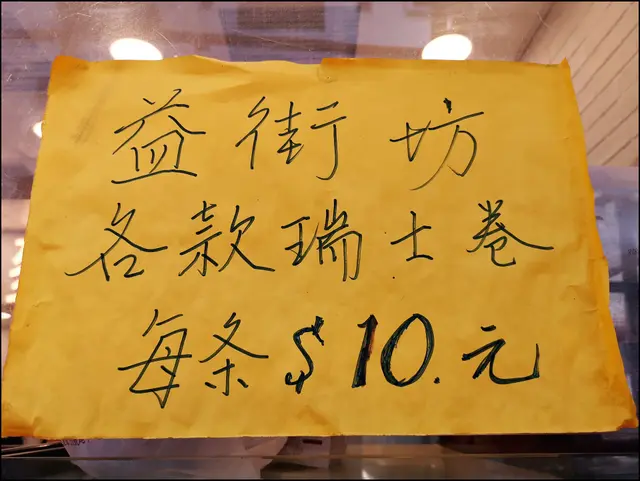 益街坊
各款瑞士卷
每条$10.元